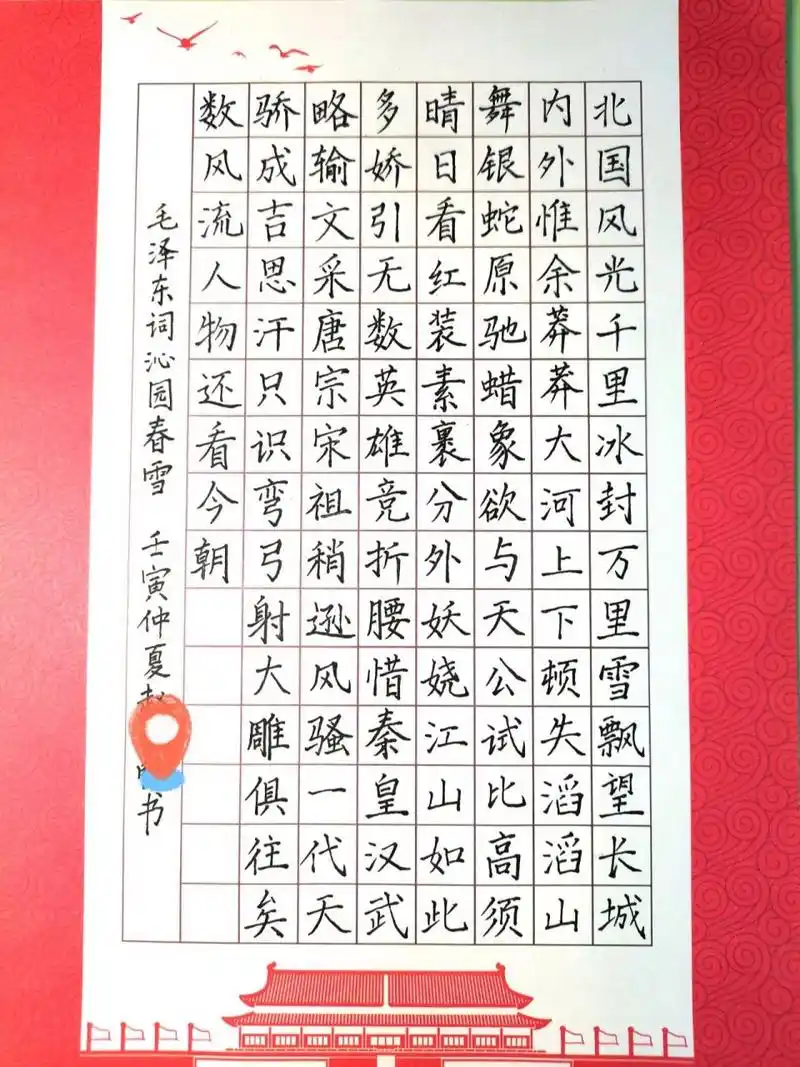 北国风光千里冰封万里雪飘望长城
内外惟余莽莽大河上下顿失滔滔山
舞银蛇原驰蜡象欲与天公试比高须
晴日看红装素裹分外妖娆江山如此
多娇引无数英雄竞折腰惜秦皇汉武
略输文采唐宗宋祖稍逊风骚一代天
骄成吉思汗只识弯弓射大雕俱往矣
数风流人物还看今朝
毛泽东词沁园春雪 壬寅仲夏赵 书